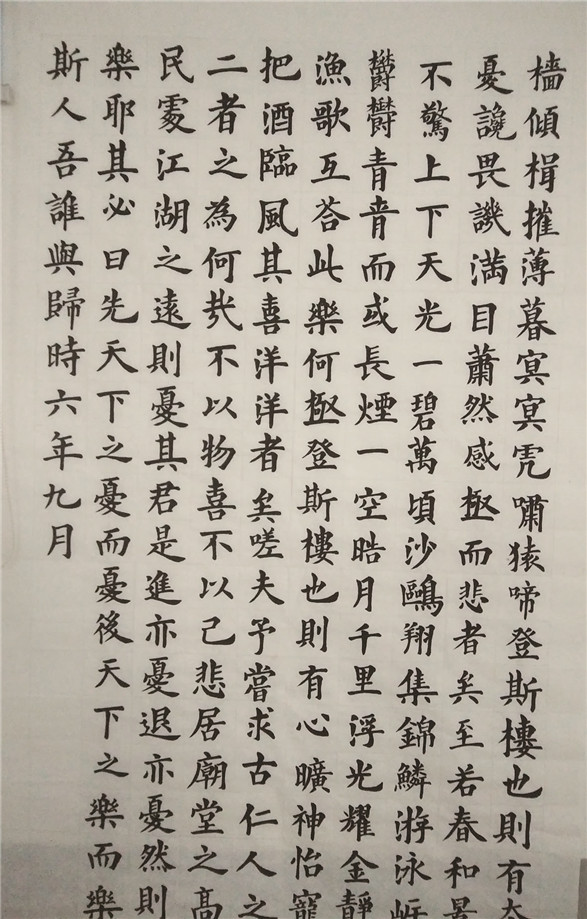 檣傾楫摧薄暮冥冥虎嘯猿啼登斯樓也則有去
憂讒畏譏滿目蕭然感極而悲者矣至若春和景
不驚上下天光一碧萬頃沙鷗翔集錦鱗游泳岸
欝欝青青而或長煙一空皓月千里浮光耀金靜
漁歌互荅此樂何極登斯樓也則有心曠神怡寵
把酒臨風其喜洋洋者矣嗟夫予嘗求古仁人之
二者之為何㢤不以物喜不以己悲居廟堂之高
民處江湖之遠則憂其君是進亦憂退亦憂然則
樂耶其必曰先天下之憂而憂後天下之樂而樂
斯人吾誰與歸時六年九月